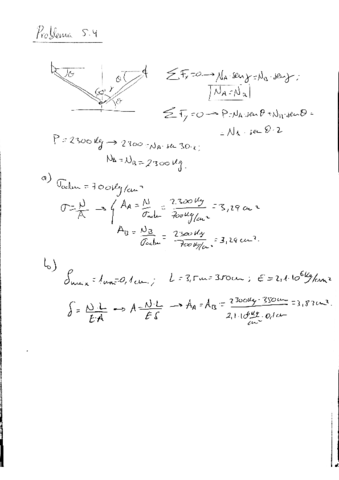 Problema 5.4
θ θ
60º γ θ
ΣFx=0 → NA senγ = NB·senγ;
NA=NB
ΣFy=0 → P=NA senθ+NB·senθ=
=NA·senθ·2
P=2300Kg → 2300=NA·sen 30·2;
NA=NB=2300Kg.
a)
σadm=700Kg/cm²
σ=N/A → { AA=N/σadm = 2300Kg/700Kg/cm² = 3,29cm²
AB=NB/σadm = 2300Kg/700Kg/cm² = 3,29cm².
b)
δmax=1mm=0,1cm; L=3,5m=350cm; E=2,1·10⁶Kg/cm²
δ=N·L/E·A → A=N·L/E·δ → AA=AB=2300Kg·350cm/2,1·10⁶Kg/cm²·0,1cm=3,83cm².